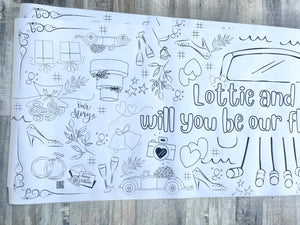 our
story
Lottie and
will you be our fl